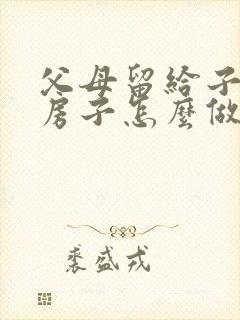 父母留給子
房子怎麼做
裘盛戎